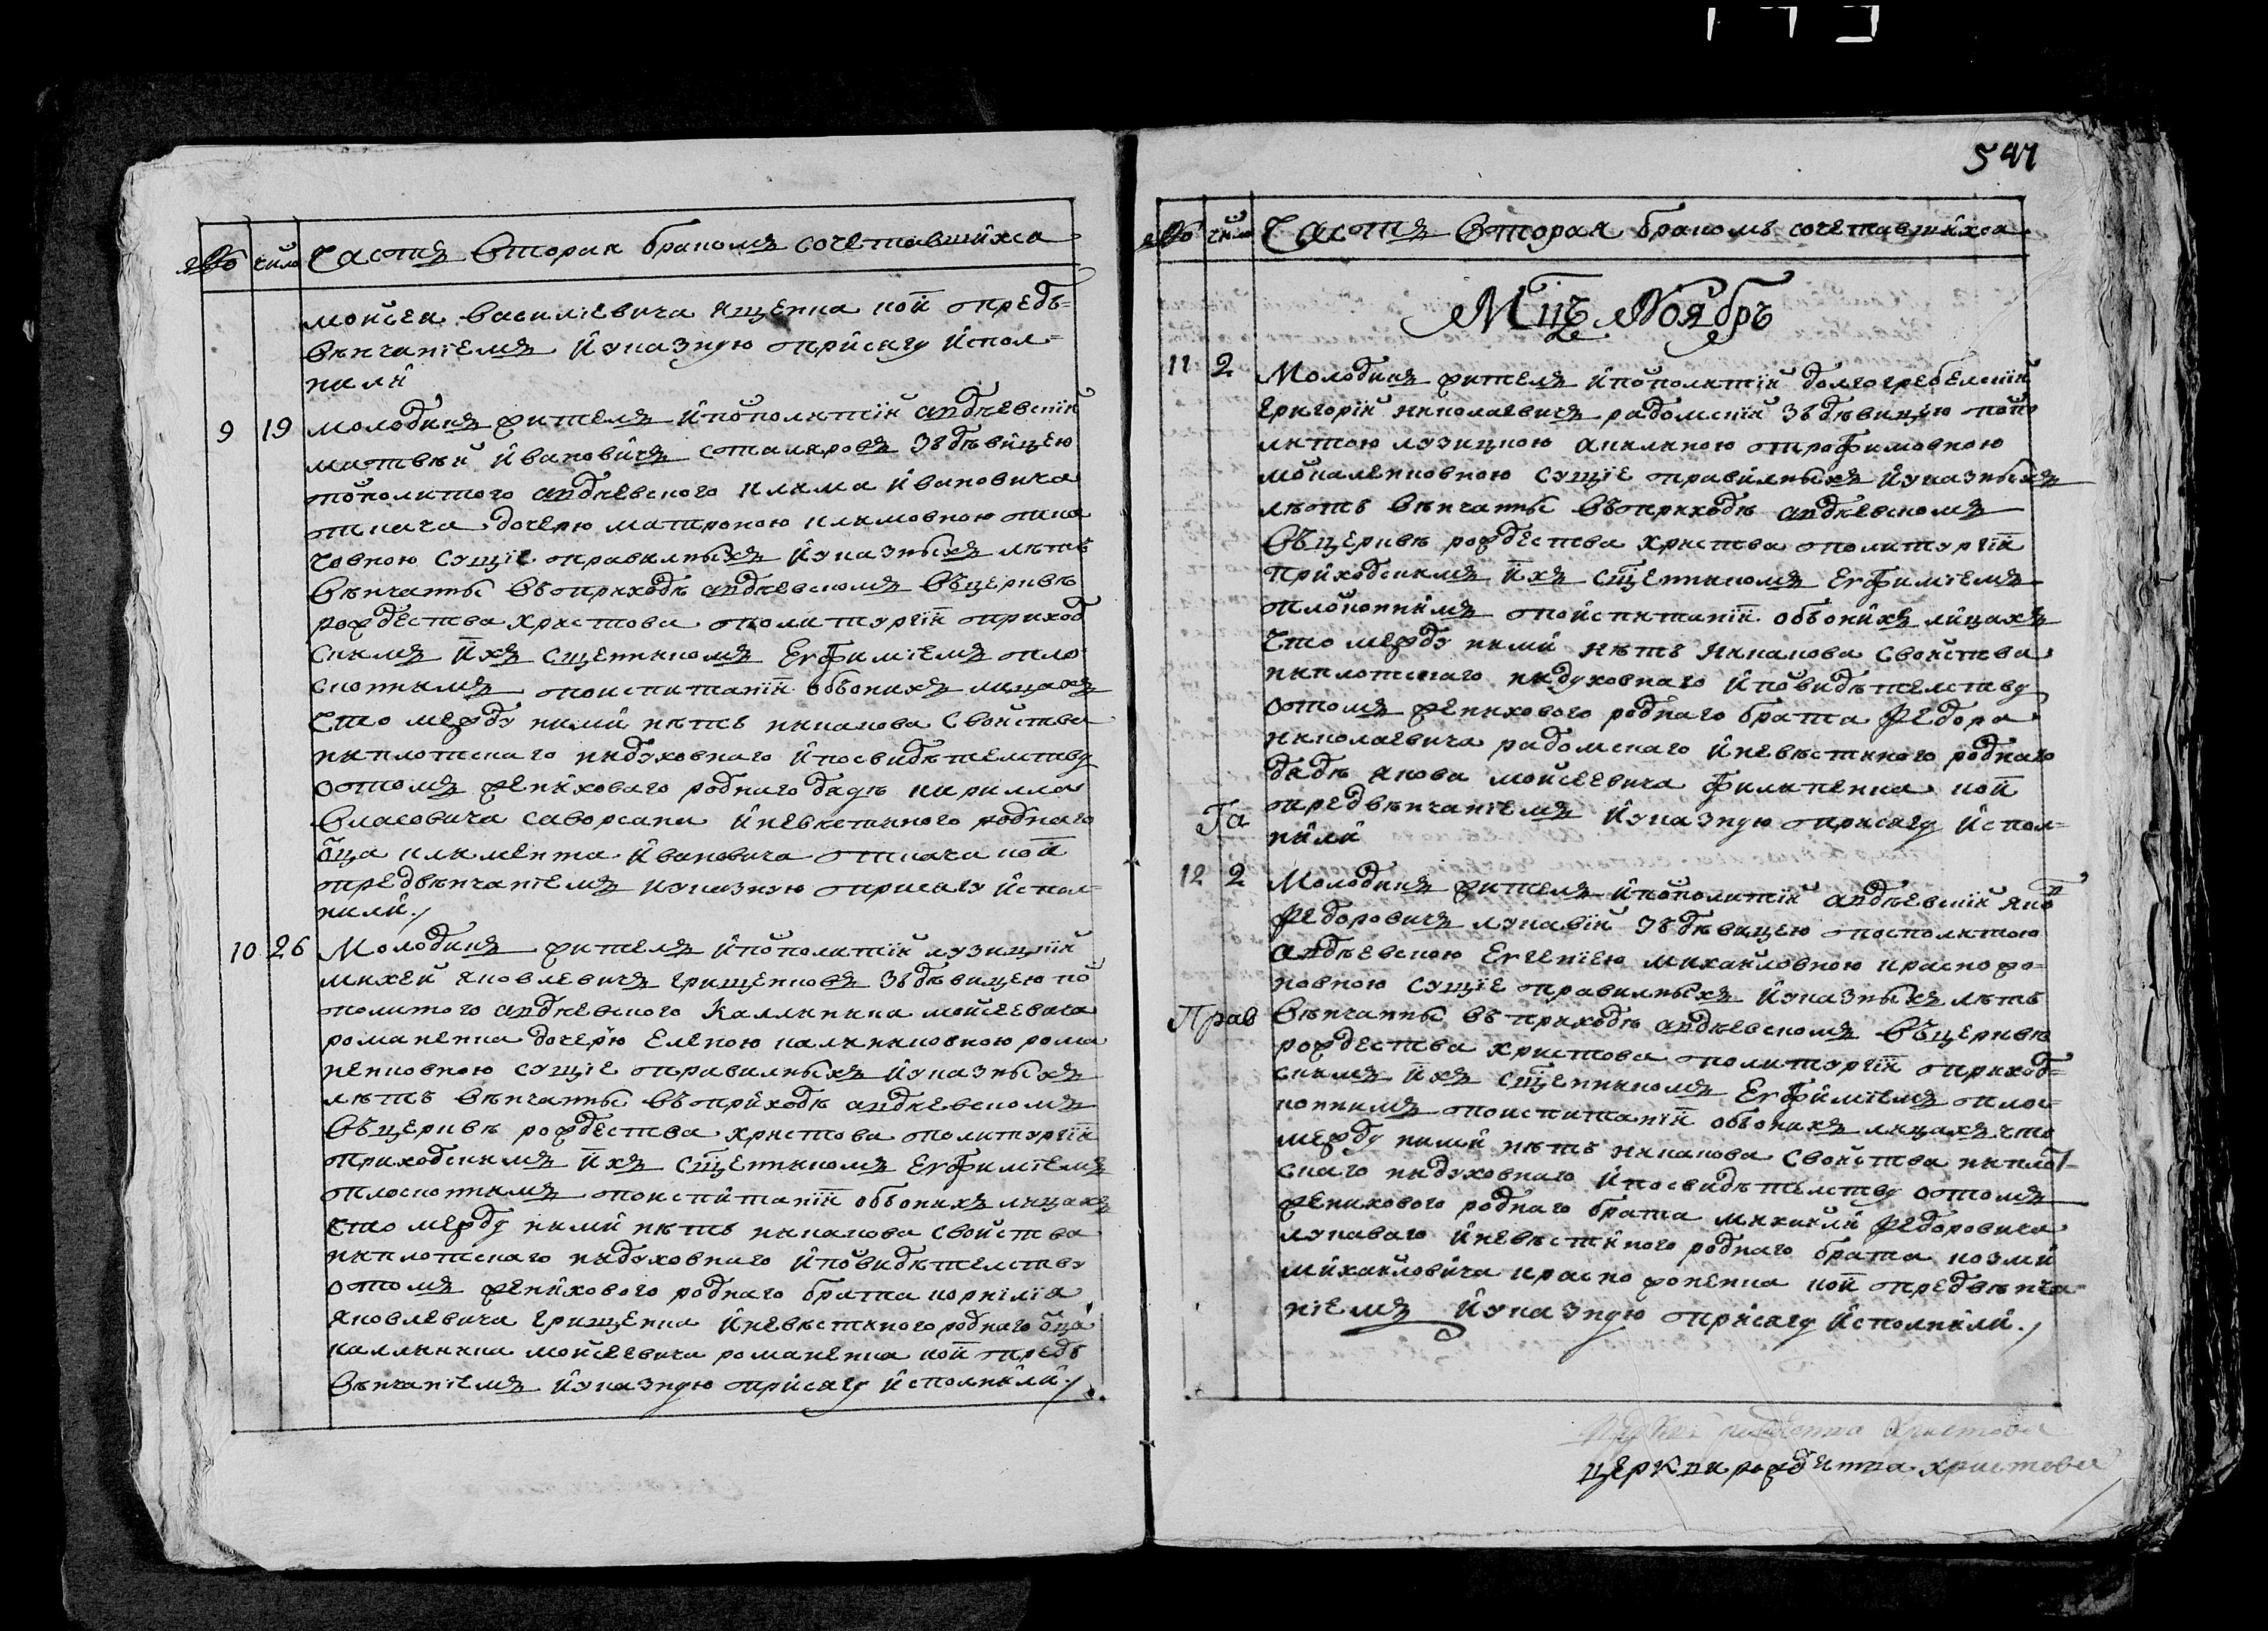 547
№ число Часть вторая бракомъ сочетавшихся
моисея василиевича ященка кои предъ
вѣнчаниемъ и указную присягу испол-
нили
9 19 молодикъ житель и пополитій андреевскій
матвѣй ивановичъ столяровъ зъ дѣвицею
пополитого андреевского клима ивановича
ткача дочерю матроною климовною тка
човною сущіе правилныхъ и указныхъ лѣтъ
вѣнчанны въ приходѣ андреевскомъ въ церквѣ
рождества христова по литургіи приход
скимъ ихъ сщенникомъ Егфиміемъ пло
скопкимъ по испитаніи обоихъ лицахъ
что между ними нѣтъ никакова свойства
ни плотскаго ни духовнаго и посвидѣтелству
о томъ женихового роднаго дядѣ кирилла
власовича и невѣстиного роднаго
оца климента ивановича ткача кои
предвѣнчаніемъ и указную присягу испол-
нили./
10 26 Молодикъ житель и пополитій лузицкій
михей яковлевичъ грищенковъ зъ дѣвицею по
политого андреевского каллиника моисеевича
романенка дочерю Еленою калиниковною рома
ненковною сущіе правилныхъ и указныхъ
лѣтъ вѣнчанны въ приходѣ андреевскомъ
въ церквѣ рождества христова по литургіи
приходскимъ ихъ сщенникомъ Егфиміемъ
плоскопкимъ по испитаніи обоихъ лицахъ
что между ними нѣтъ никакова свойства
ни плотскаго ни духовнаго и повидѣтелству
о томъ женихового роднаго брата корнилія
яковлевича грищенка и невѣстиного роднаго оца
каллиника моисеевича романенка кои предъ
вѣнчаніемъ и указную присягу исполнили./
№ число Часть вторая бракомъ сочетавшихся
Мцъ Ноябръ
11 2 Молодикъ житель и пополитій долгогребелскій
григорій николаевичъ радомскій зъ дѣвицею попо
литою лузицкою акилиною трофимовною
сущіе правилныхъ и указныхъ
лѣтъ вѣнчанны въ приходѣ андреевскомъ
въ церквѣ рождества христва по литургіи
приходскимъ ихъ сщенникомъ Егфиміемъ
плоскопкимъ по испитаніи обоихъ лицахъ
что между ними нѣтъ никакова свойства
ни плотскаго ни духовнаго и повидѣтелству
о томъ женихового роднаго брата федора
николаевича радомскаго и невѣстиного роднаго
дядѣ якова моисеевича филипенка кои
Га предвѣнчаніемъ и указную присягу испол-
нили
12 2 Молодикъ житель и пополитій андреевскій яко
федоровичъ лукавій зъ дѣвицею посполитою
андреевскою Еггеніею михайловною красножо-
новною сущіе правилныхъ и указныхъ лѣтъ
Прав вѣнчанны въ приходѣ андреевскомъ въ церквѣ
рождества христова по литургіи приход-
скимъ ихъ сщенникомъ Егфиміемъ плос-
копкимъ по испитаніи обоихъ лицахъ что
между ними нѣтъ никакова свойства ни плот-
скаго ни духовнаго и посвидѣтелству о томъ
женихового роднаго брата михаили федоровича
лукаваго и невѣстиного роднаго брата козми
михайловича красножоненка кои предвѣнча-
ніемъ и указную присягу исполнили./
рождества Христова
церкви рождества христова